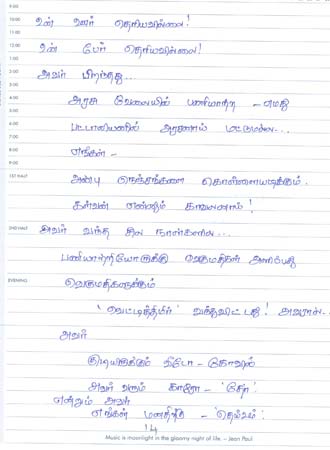 9:00
10:00 உன் ஊர் தெரியவில்லை!
11:00
12:00 உன் பேர் தெரியவில்லை!
1:00
2:00 அவர் பிறந்தது...
3:00
4:00 அரசு வேலையில் பணியாற்ற - எமது
5:00
6:00 பட்டாலியனின் அரணாய் மட்டுமல்ல...
7:00
8:00 எங்கள் -
9:00
1ST HALF அன்பு நெஞ்சங்களை கொள்ளையடிக்கும்.
கள்வன் என்னும் காவலனாய்!
2ND HALF அவர் வந்த சில நாள்களில...
பணியாற்றியோருக்கு வெகுமதிகள் அளிப்பது
EVENING வெகுமதிகளுக்கும்
'வெட்டித்திமிர்' வந்துவிட்டது! அவரால்...
அவர்
குடியிருக்கும் வீடோ - கோவில்
அவர் வரும் காரோ - 'தேர்'
என்றும் அவர்
எங்கள் மனதிற்கு - 'தெய்வம்'.
14
Music is moonlight in the gloomy night of life. – Jean Paul